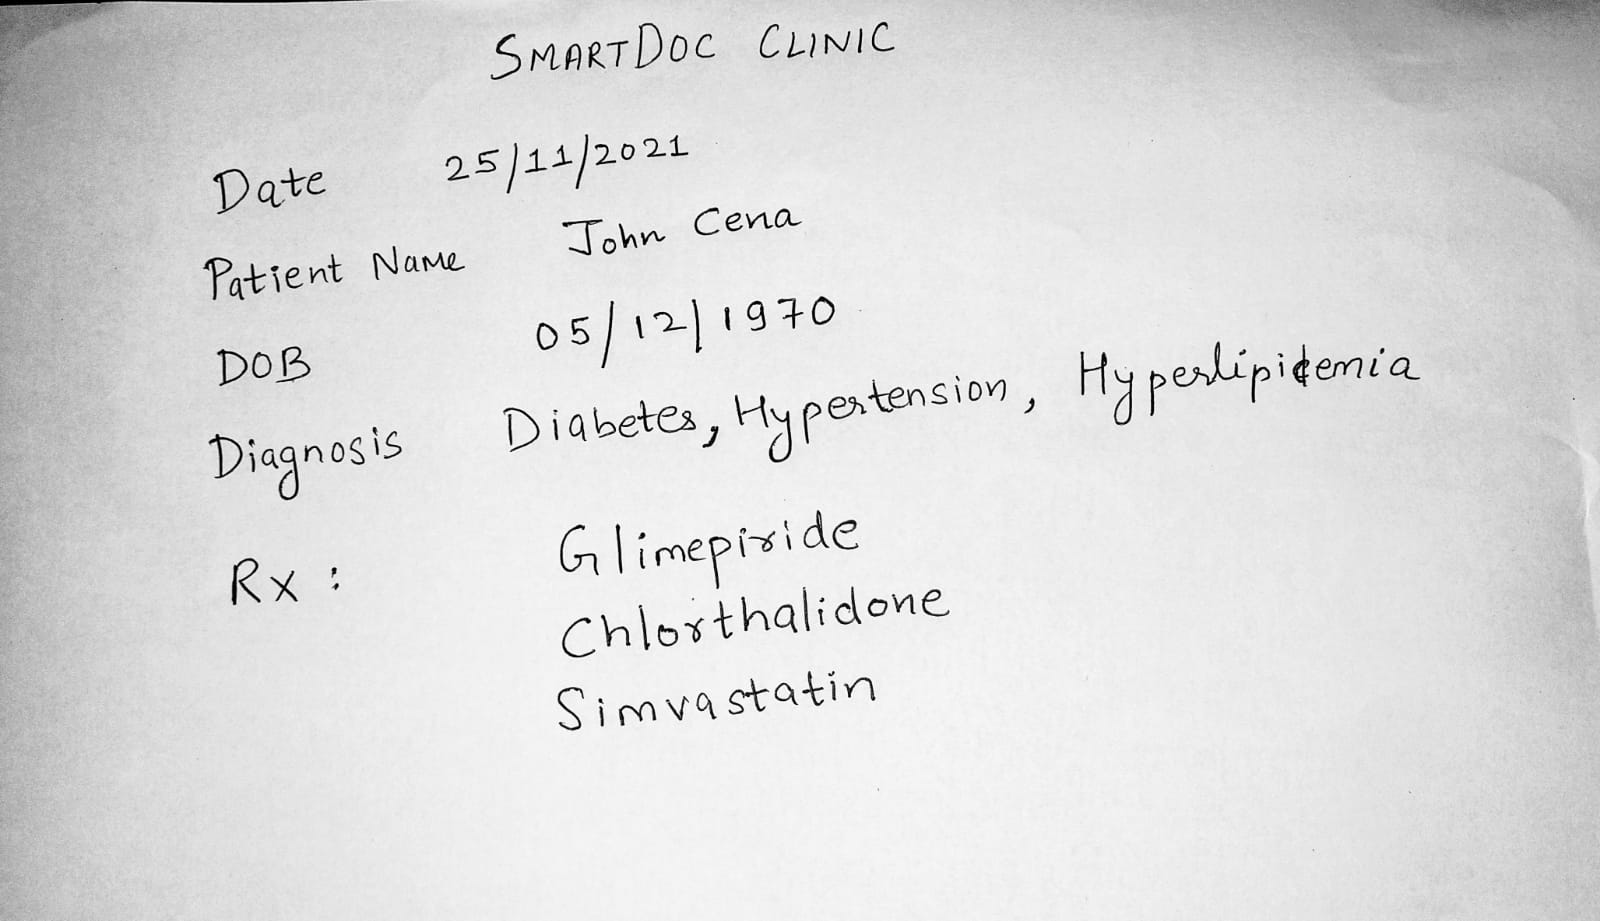 SMARTDOC CLINIC
Date 25/11/2021
Patient Name John Cena
DOB 05/12/1970
Diagnosis Diabetes, Hypertension, Hyperlipidemia
Rx : Glimepiride
Chlorthalidone
Simvastatin